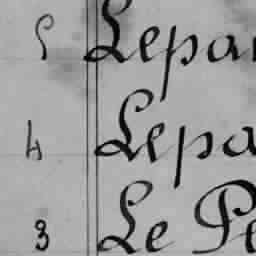 5 Lepar
4 Lepa
3 Le Pe